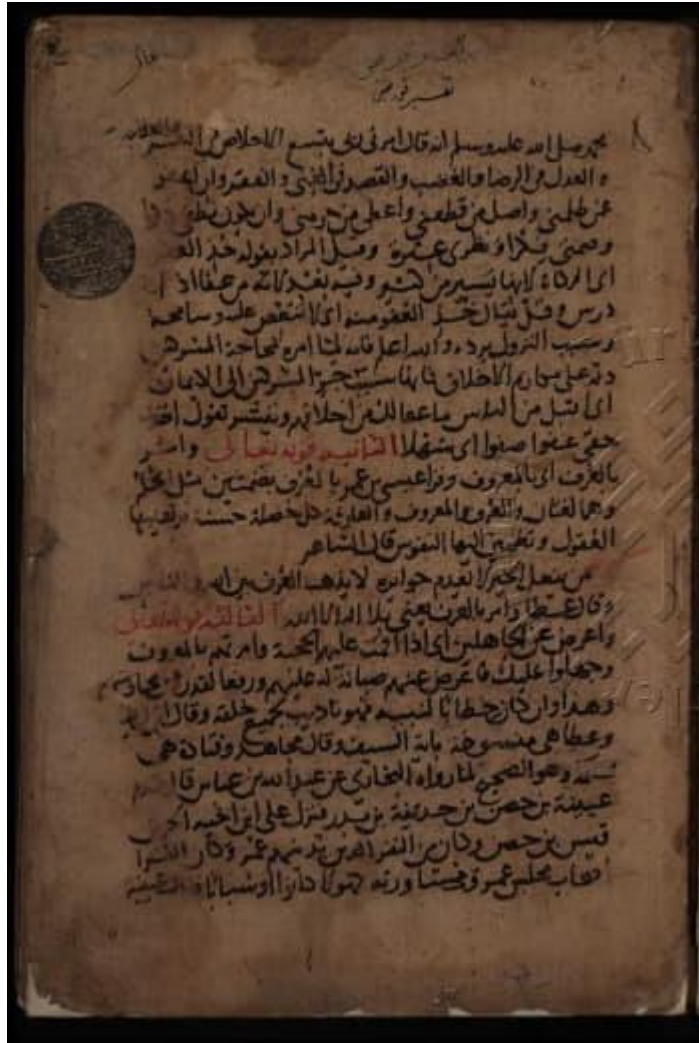 تفسير قرطبي
محمد صلى الله عليه وسلم انه قال امرني ربي بتسع الاخلاص في السر والعلانية
والعدل في الرضا والغضب والقصد في الغنى والفقر وان اعفو
عمن ظلمني واصل من قطعني واعطي من حرمني وان يكون نطقي ذكرا
وصمتي فكرا ونظري عبرة وقيل المراد بقوله خذ العفو
اي الزكاة لانها يسير من كثير وفيه بعد لانه من عفا اذا
درس وقد يقال خذ العفو منه اي لا تنقص عليه وسامحه
وسبب النزول يرده والله اعلم فانه لما امره بمحاجة المشركين
دله على مكارم الاخلاق فانها سبب جر المشركين الى الايمان
اي اقبل من الناس ما عفا لك من اخلاقهم وتيسر تقول اخذت
حقي عفوا صفوا اي سهلا الثانية قوله تعالى وامر
بالعرف اي بالمعروف وقرا عيسى بن عمر بالعرف بضمتين مثل الحلم
وهما لغتان والعرف والمعروف والعارفة كل خصلة حسنة ترتضيها
العقول وتطمئن اليها النفوس قال الشاعر
من يفعل الخير لا يعدم جوازيه لا يذهب العرف بين الله والناس
وقال عطا وامر بالعرف يعني بلا اله الا الله الثالثة قوله تعالى
واعرض عن الجاهلين اي اذا اقمت عليهم الحجة وامرتهم بالمعروف
وجهلوا عليك فاعرض عنهم صيانة له عليهم ورفعا لقدره
وهذا وان كان خطابا لنبيه فهو تاديب لجميع خلقه وقال ابن زيد
وعطا هي منسوخة باية السيف وقال مجاهد وقتادة هي
محكمة وهو الصحيح لما رواه البخاري عن عبد الله بن عباس قال قدم
عيينة بن حصن بن حذيفة بن بدر فنزل على ابن اخيه الحر بن
قيس بن حصن وكان من النفر الذين يدنيهم عمر وكان القرا
اصحاب مجلس عمر ومشاورته كهولا كانوا او شبانا فقال عيينة